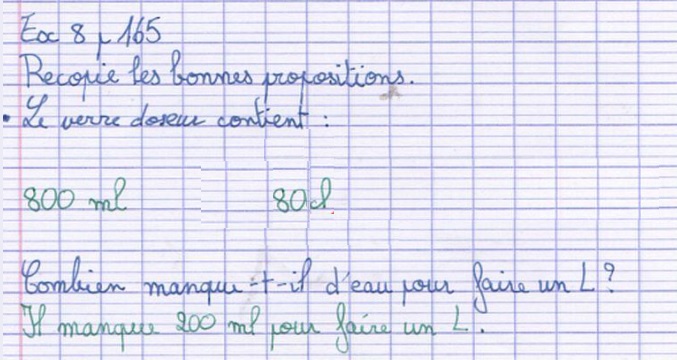 Ex 8 p 165
Recopie les bonnes propositions.
• Le verre doseur contient :
800 ml 80 cl
Combien manque-t-il d'eau pour faire un L ?
Il manque 200 ml pour faire un L.